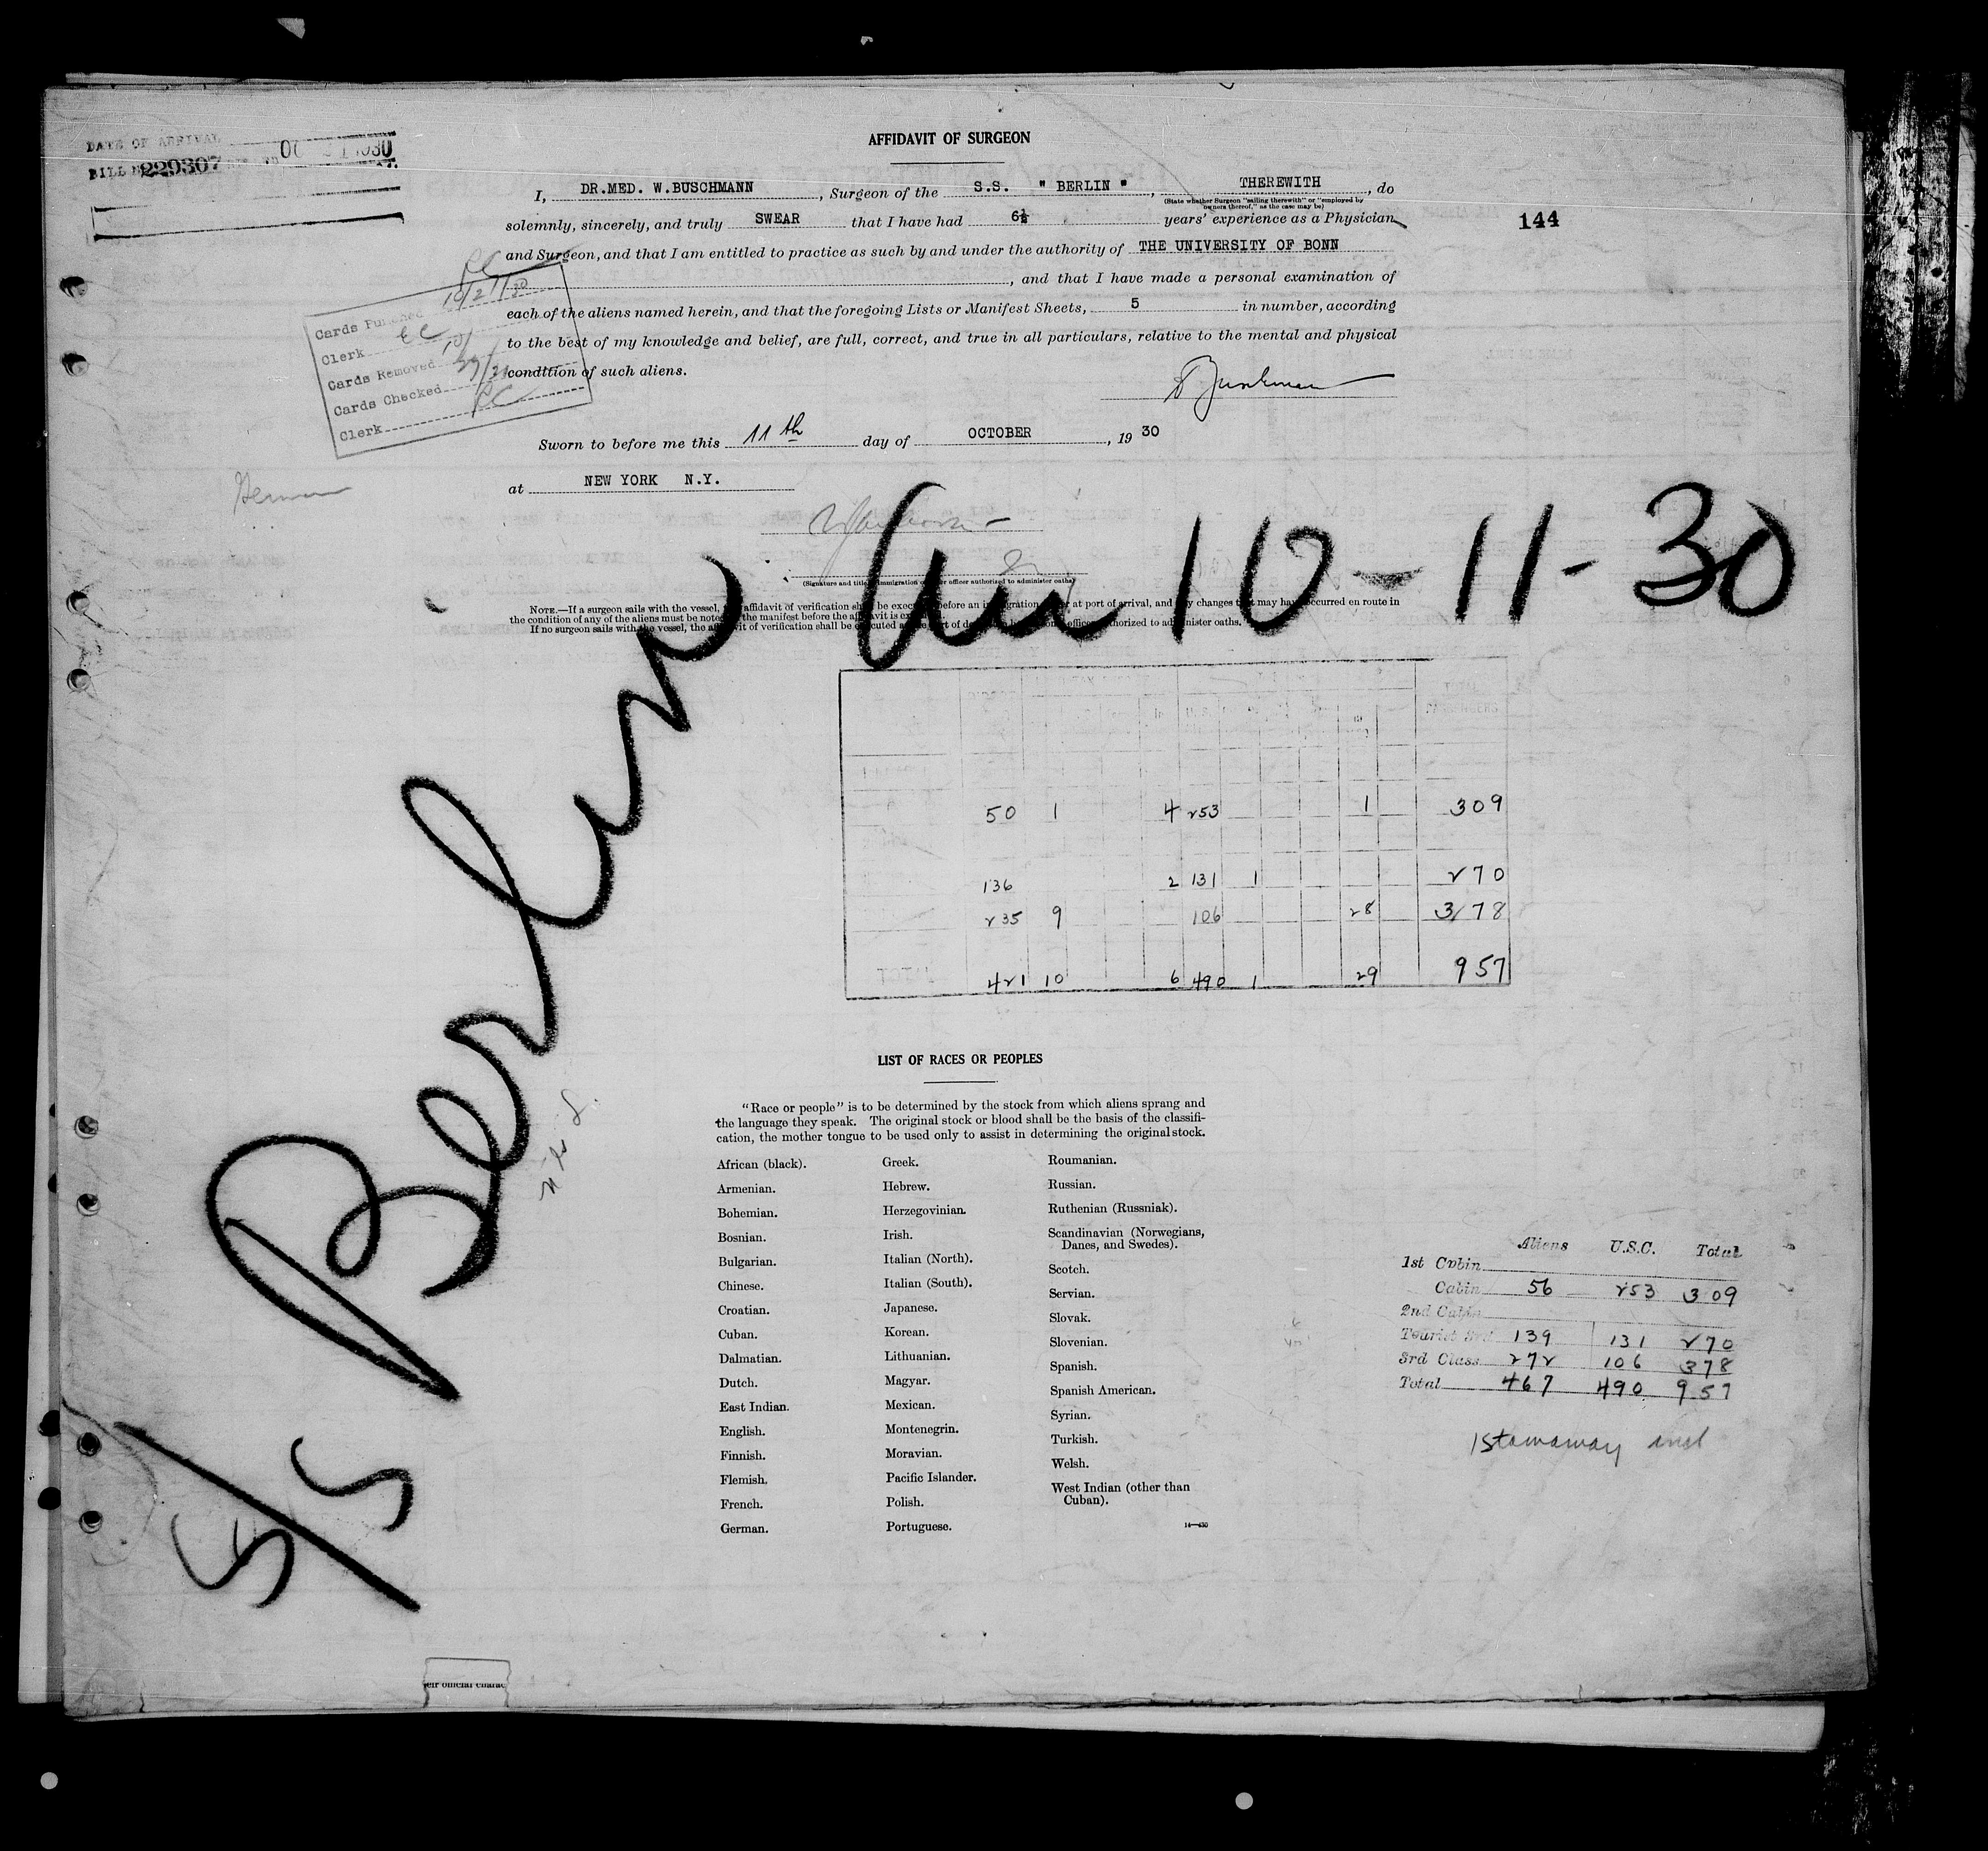 DATE OF ARRIVAL
BILL 229307
AFFIDAVIT OF SURGEON
I, DR.MED. W.BUSCHMANN, Surgeon of the S.S. " BERLIN ", THEREWITH, do
(State whether Surgeon "sailing therewith" or "employed by
owners thereof," as the case may be)
solemnly, sincerely, and truly SWEAR that I have had 6½ years' experience as a Physician
144
and Surgeon, and that I am entitled to practice as such by and under the authority of THE UNIVERSITY OF BONN
, and that I have made a personal examination of
each of the aliens named herein, and that the foregoing Lists or Manifest Sheets, 5 in number, according
to the best of my knowledge and belief, are full, correct, and true in all particulars, relative to the mental and physical
condition of such aliens.
Cards Punched 10/21/30
Clerk
Cards Removed
Cards Checked
Clerk
Sworn to before me this 11th day of OCTOBER, 19 30
at NEW YORK N.Y.
(Signature and title of immigration or other officer authorized to administer oaths)
NOTE.—If a surgeon sails with the vessel, affidavit of verification shall be executed before an immigration at port of arrival, and any changes that may have occurred en route in
the condition of any of the aliens must be noted the manifest before the affidavit is
If no surgeon sails with the vessel, the affidavit of verification shall be executed at port of officer authorized to administer oaths.
S/S Berlin Arr 10-11-30
TOTAL
PASSENGERS
50 1 4 253 1 309
136 2 131 1 270
235 9 106 28 378
421 10 6 490 1 29 957
LIST OF RACES OR PEOPLES
"Race or people" is to be determined by the stock from which aliens sprang and
the language they speak. The original stock or blood shall be the basis of the classifi-
cation, the mother tongue to be used only to assist in determining the original stock.
African (black).
Armenian.
Bohemian.
Bosnian.
Bulgarian.
Chinese.
Croatian.
Cuban.
Dalmatian.
Dutch.
East Indian.
English.
Finnish.
Flemish.
French.
German.
Greek.
Hebrew.
Herzegovinian.
Irish.
Italian (North).
Italian (South).
Japanese.
Korean.
Lithuanian.
Magyar.
Mexican.
Montenegrin.
Moravian.
Pacific Islander.
Polish.
Portuguese.
Roumanian.
Russian.
Ruthenian (Russniak).
Scandinavian (Norwegians,
Danes, and Swedes).
Scotch.
Servian.
Slovak.
Slovenian.
Spanish.
Spanish American.
Syrian.
Turkish.
Welsh.
West Indian (other than
Cuban).
14—430
Aliens U.S.C. Total
1st Cabin
Cabin 56 253 309
2nd Cabin
Tourist 3rd 139 131 270
3rd Class 272 106 378
Total 467 490 957
1 stowaway incl